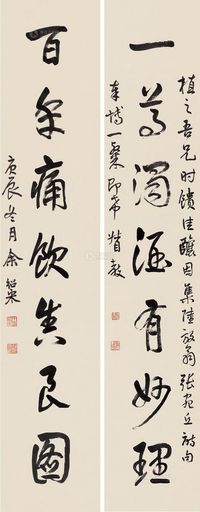 植之吾兄时饋佳釀因集陸放翁張宛丘詩句
一尊濁酒有妙理
奉博一粲即希督教
百年痛飲真良圖
庚辰冬月余紹宋